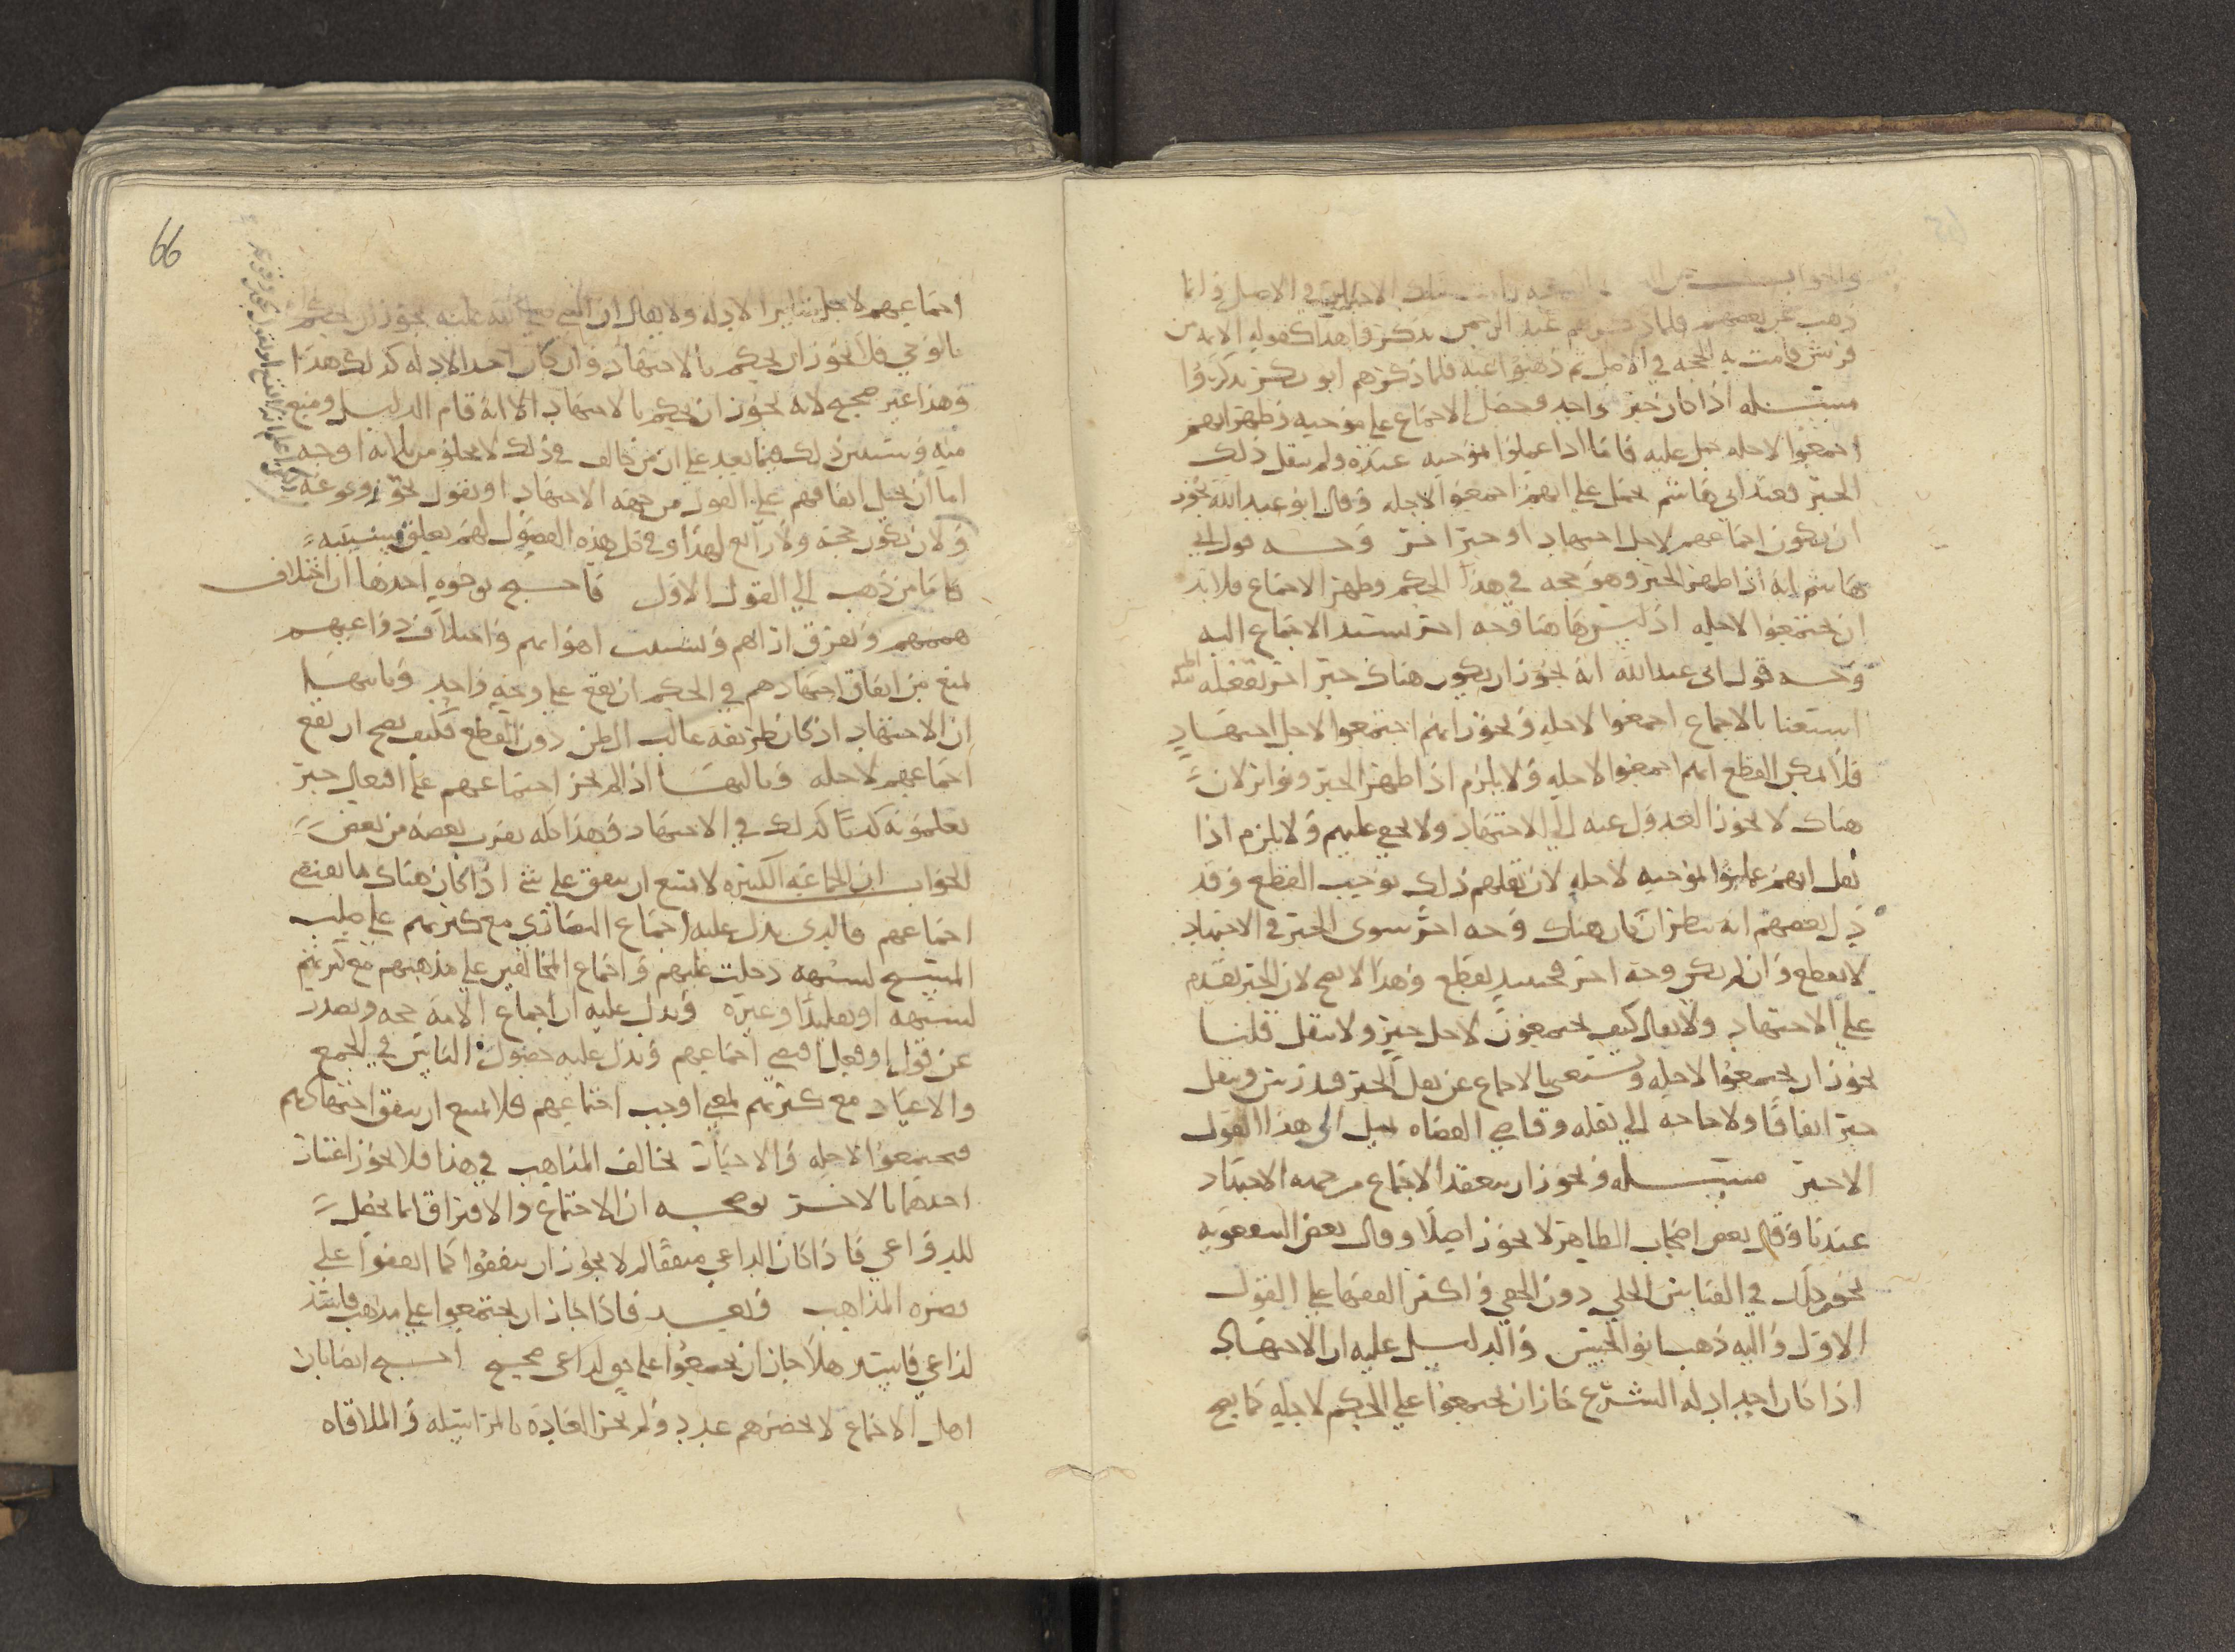 والجواب
ذهب عن بعضهم فلما ذكرهم عبد الرحمن تذكروا هذا كقوله الايه من
قريش قامت به الحجه في الاصل ثم ذهبوا عنه فلما ذكرهم ابو بكر تذكروا
مسئله اذا كان خبر واحد وحصل الاجماع على موجبه وظهر انهم
اجمعوا لاجله حمل عليه فاما اذا عملوا بموجبه عنده ولم ينقل ذلك
الخبر فعند ابي هاشم يحمل على انهم اجمعوا لاجله وقال ابو عبد الله يجوز
ان يكون اجماعهم لاجل اجتهاد او خبر اخر وجه قول ابي
هاشم انه اذا ظهر الخبر وهو حجه في هذا الحكم وظهر الاجماع فلا بد
ان يجتمعوا لاجله اذ ليس هاهنا وجه اخر يستند الاجماع اليه
وجه قول ابي عبد الله انه يجوز ان يكون هناك خبر اخر
استغنا بالاجماع اجمعوا لاجله ويجوز انهم اجتمعوا لاجل اجتهاد
فلا يمكن القطع انهم اجمعوا لاجله ولا يلزم اذا ظهر الخبر وتواتر لان
هناك لا يجوز العدول عنه الى الاجتهاد ولا يخفي عليهم ولا يلزم اذا
نقل انهم عملوا بموجبه لاجله لان نقلهم ذلك يوجب القطع وقد
ذكر بعضهم انه ينظر ان كان هناك وجه اخر سوى الخبر في الاجتهاد
لا يقطع وان لم يكن وجه اخر فحينئذ يقطع وهذا لا يصح لان الخبر يقدم
على الاجتهاد ولا يقال كيف يجتمعون لاجل خبر ولا ينقل قلنا
يجوز ان يجتمعوا لاجله ويستغنى بالاجماع عن نقل الخبر وينقل
خبر اتفاقا ولا حاجه الى نقله وقاضي القضاه يميل الى هذا القول
الاخير مسئله ويجوز ان ينعقد الاجماع من جهه الاجتهاد
عندنا وقال بعض اصحاب الظاهر لا يجوز اصلا وقال بعض الشفعويه
يجوز ذلك في القياس الجلي دون الخفي واكثر الفقها على القول
الاول واليه ذهب ابو الحسين والدليل عليه ان الاجتهاد
اذا كان احد ادله الشرع جاز ان يجتمعوا على الحكم لاجله كما يصح
66
اجماعهم لاجل سائر الادله ولا يقال ان النبي صلى الله عليه يجوز ان يحكم
بالوحي فلا يجوز ان يحكم بالاجتهاد وان كان احد الادله كذلك هذا
وهذا غير صحيح لانه يجوز ان يحكم بالاجتهاد الا انه قام الدليل ومنع
منه وسنبين ذلك فيما بعد على ان من خالف في ذلك لا يخلو من ثلاثه اوجه
اما ان يحيل اتفاقهم على القول من جهه الاجتهاد او نقول يجوز وقوعه
ولان يكون حجه ولا رابع لهذا وفي كل هذه الفصول لهم تعلق
فاما من ذهب الى القول الاول فاحتج بوجوه احدها ان اختلاف
هممهم وتفرق ارائهم وتشتت اهوائهم واختلاف دواعيهم
يمنع من اتفاق اجتهادهم في الحكم ان يقع على وجه واحد وثانيها
ان الاجتهاد اذ كان طريقه غالب الظن دون القطع فكيف يصح ان يقع
اجماعهم لاجله وثالثها اذا لم يجز اجتماعهم على افتعال خبر
يعلمونه كذبا كذلك في الاجتهاد وهذا كله يقرب بعضه من بعض
الجواب ان الجماعه الكثيره لا يمتنع ان يتفق على شي اذا كان هناك ما يقتضي
اجماعهم فالذي يدل عليه اجتماع النصارى مع كثرتهم على صلب
المسيح لشبهه دخلت عليهم واجماع المخالفين على مذهبهم مع كثرتهم
لشبهه او تقليد او غيره ويدل عليه ان اجماع الامه حجه ويصدر
عن قول او فعل اقتضى اجماعهم ويدل عليه حضور الناس في الجمع
والاعياد مع كثرتهم لمعنى اوجب اجتماعهم فلا يمتنع ان يتفق اجتهادهم
فيجتمعوا لاجله والاخبار تخالف المذاهب في هذا فلا يجوز اعتبار
احدهما بالاخر يوضحه ان الاجتماع والافتراق انما يحصل
للدواعي فاذا كان الداعي متفقا لم لا يجوز ان يتفقوا كما اتفقوا على
نصره المذاهب وبعد فاذا جاز ان يجتمعوا على مذهب فاسد
لداعي فاسد هلا جاز ان يجمعوا على حق لداعي صحيح احتج ايضا بان
اهل الاجماع لا يحصرهم عدد ولم تجر العاده بالمراسله والملاقاه